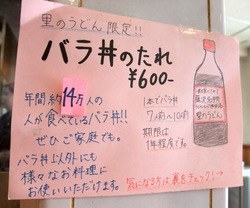 里のうどん 限定!!
バラ丼のたれ
¥600-
年間約14万人の
人が食べているバラ丼!!
ぜひご家庭でも。
バラ丼以外にも
様々なお料理に
お使いいただけます。
1本でバラ丼
7人前〜10人前
期限は
1年程度です。
里のうどん
気になる方は裏をチェック